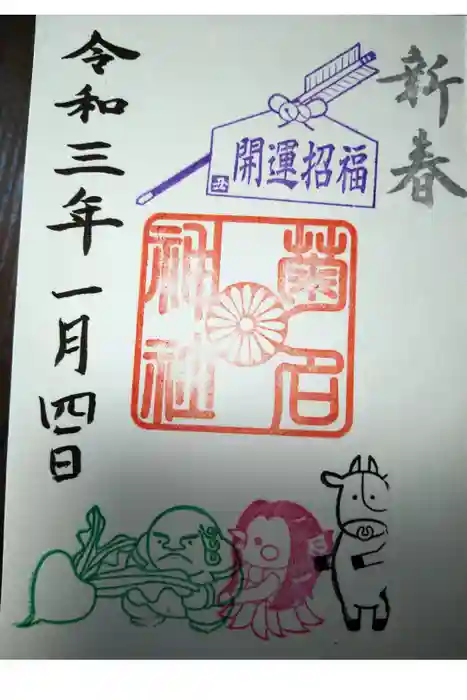 新春
開運招福
丑
菊名
神社
令和三年一月四日